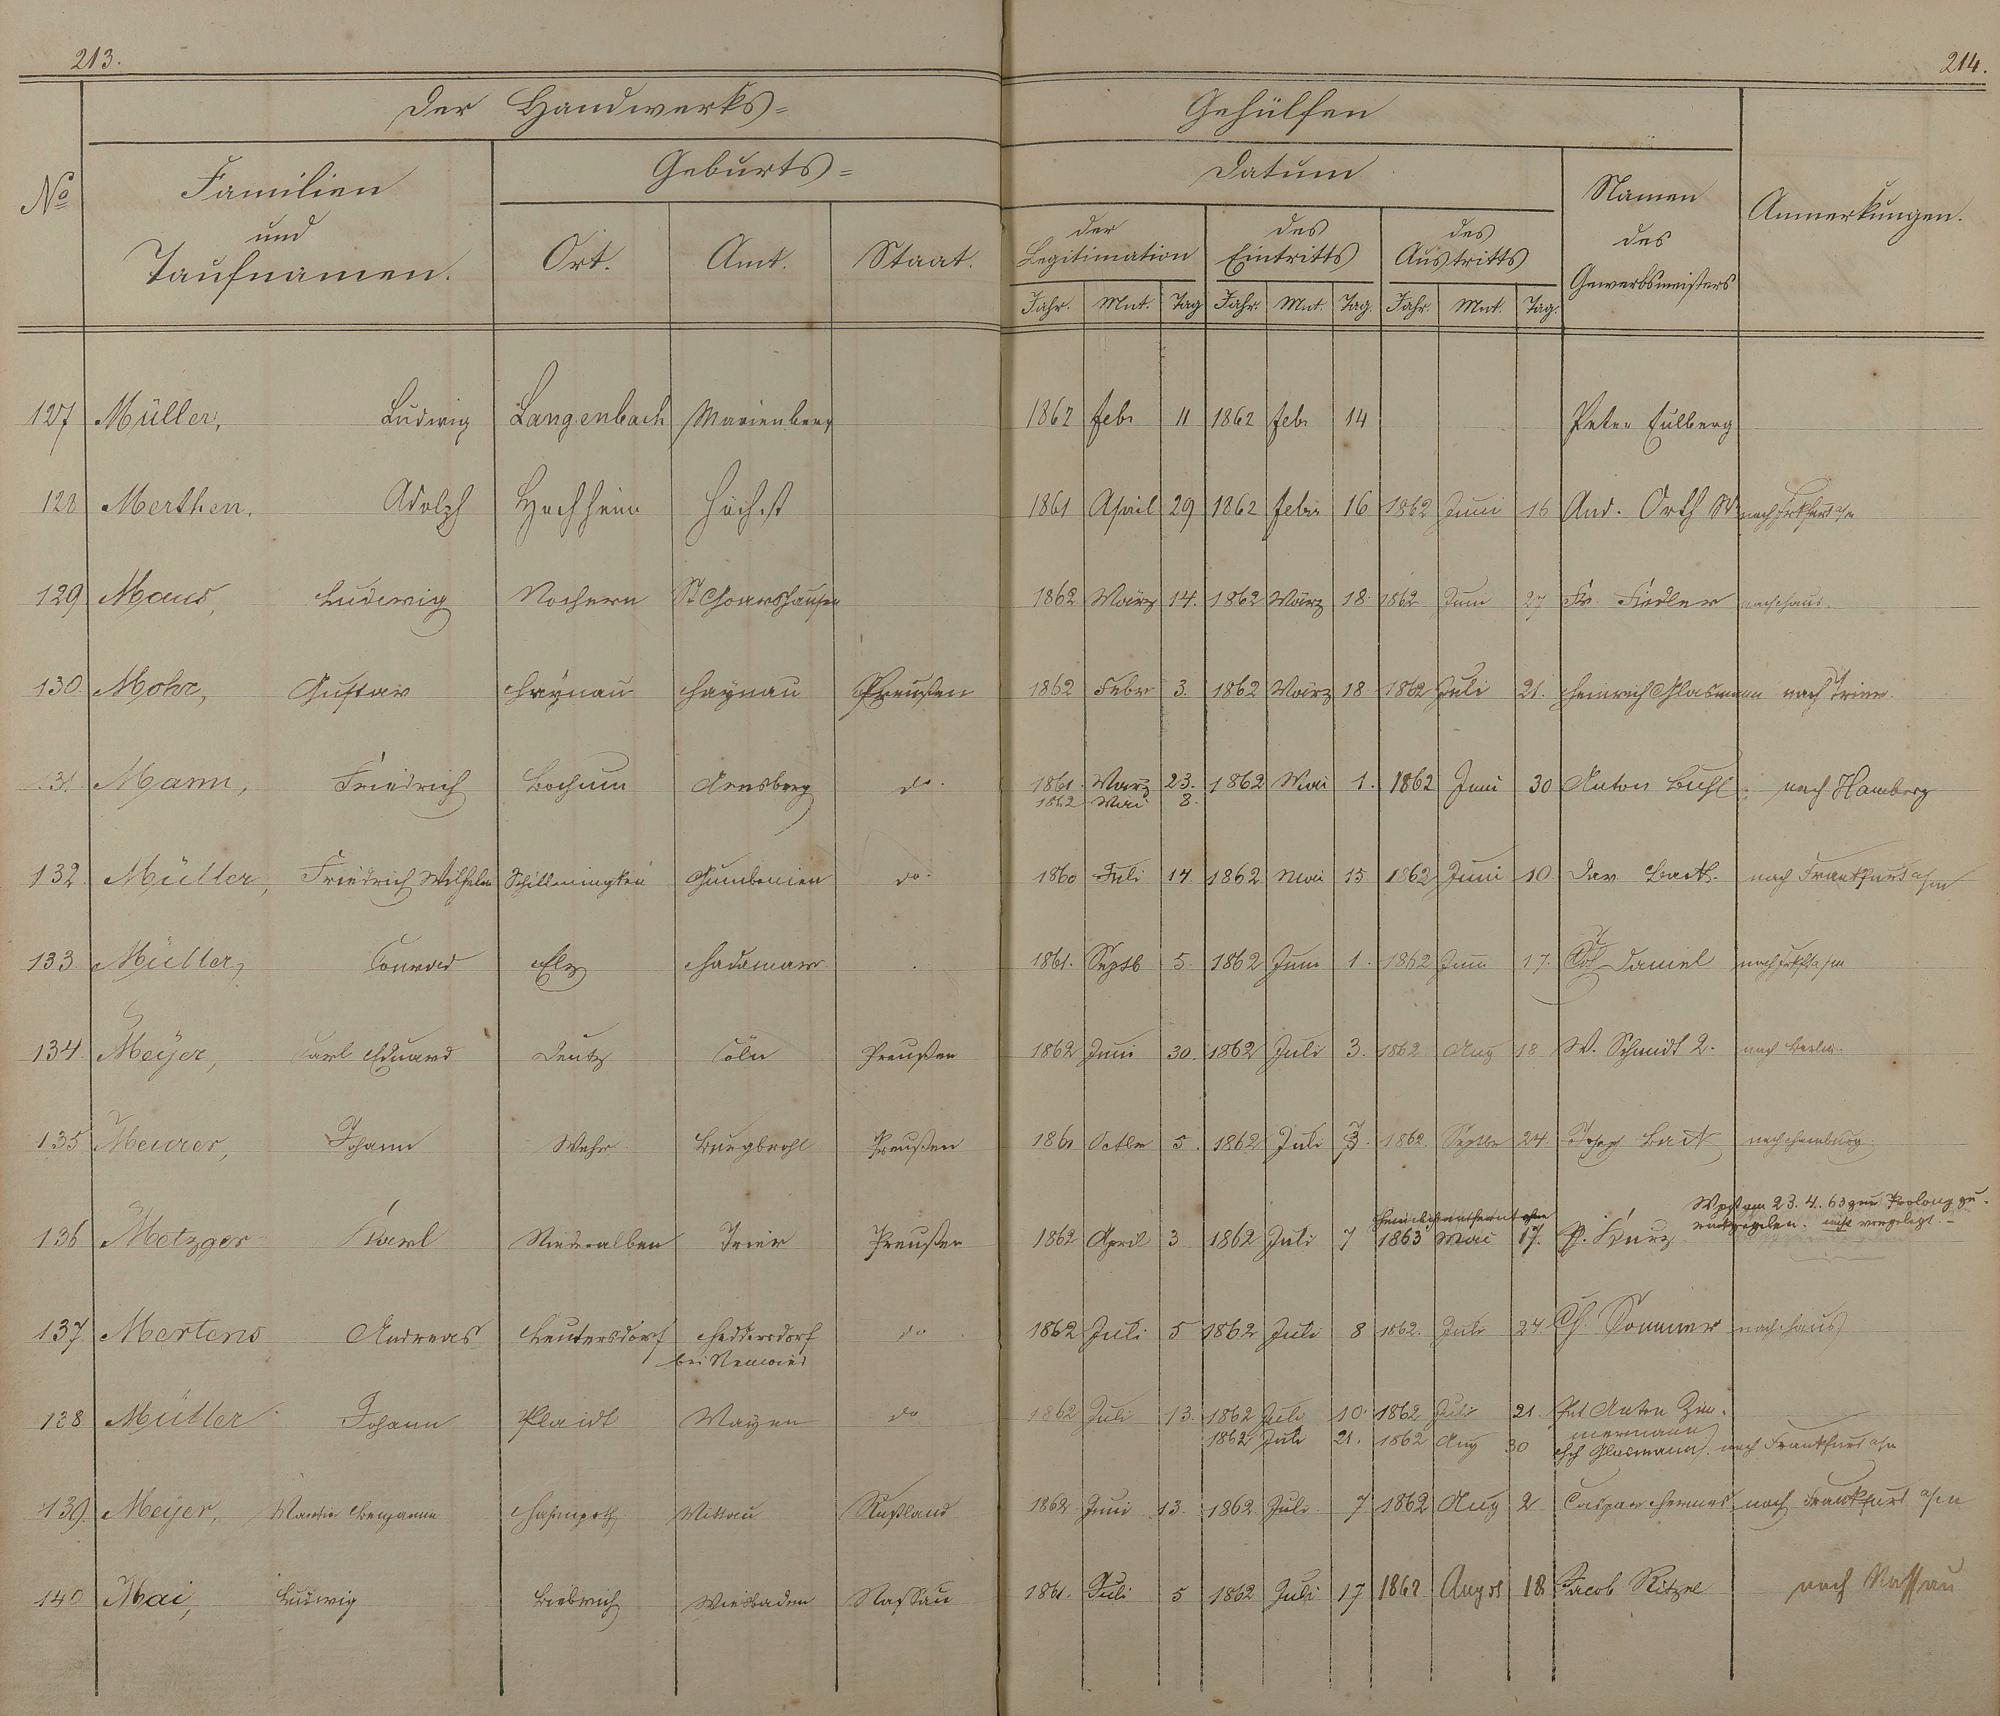 213.
214.
Der Handwerks=
Gehülfen
No
Familien
und
Taufnamen.
Geburts=
Ort.
Amt.
Staat.
Datum
der
Legitimation
des
Eintritts
des
Austritts
Jahr. Mnt. Tag Jahr. Mnt. Tag. Jahr. Mnt. Tag.
Namen
des
Gewerbsmeisters
Anmerkungen.
127 Müller, Ludwig Langenbach Marienberg 1862 Febr 11 1862 Febr 14 Peter Eulberg
128 Merthen. Adolph Hochheim Höchst 1861 April 29 1862 Febr 16 1862 Juni 16 And. Orth
129 Maus, Ludewig Nochern St Goarshausen 1862 März 14. 1862 März 18. 1862 Juni 27 Fr. Fiedler nach Haus.
130. Mohr, Gustav Haynau Haynau Preußen 1862 Febr 3. 1862 März 18 1862 Juli 21. Heinrich Glasmann nach Trier.
131. Mann, Friedrich Bochum Arnsberg do. 1861. März 23. 1862 Mai 1. 1862 Juni 30 Anton Buhl nach Hamberg
1862 Mai 8.
132. Müller, Friedrich Wilhelm Schilleningken Gumbinnen do. 1860 Juli 14 1862 Mai 15 1862 Juni 10 Dav. nach Frankfurt a/m
133. Müller, Conrad Elz Hadamar 1861. Septb 5. 1862 Juni 1. 1862 Juni 17. Daniel nach Frkft a/m
134. Meÿer, Carl Eduard Deutz Cöln Preußen 1862 Juni 30. 1862 Juli 3. 1862 Aug 18 W. Schmidt 2. nach Berlin.
135 Meurer, Johann Wehr Burgbrohl Preußen 1861 Octbr 5. 1862 Juli 3. 1862. Septbr 24. Joseph nach Hamburg.
Wech am 23.4.63 zur Prolong zu=
heimlich entfernt ohne
136 Metzger Karl Niederalben Trier Preußen 1862 April 3 1862 Juli 7 1863 Mai 17. P. Kurz nicht vorgelegt. –
137. Mertens Andreas Leutersdorf Heddersdorf do 1862 Juli 5 1862 Juli 8 1862. Juli 24. Ch. Sommer nach Haus
bei Neuwied
138 Müller Johann Plaidt Mayen do 1862 Juli 13. 1862 Juli 10. 1862 Juli 21. Pet Anton Zim=
mermann
1862 Juli 21. 1862 Aug 30 Hch Glasmann. nach Frankfurt a/m
139. Meijer, Martin Hasenpoth Mittau Rußland 1862 Juni 13. 1862 Juli. 7 1862 Aug 2 Caspar Hermes nach Frankfurt a/m
140 Mai, Ludwig Biebrich Wiesbaden Nassau 1861. Juli 5 1862 Juli 17 1862 August 18 Jacob Ritzel nach Nassau